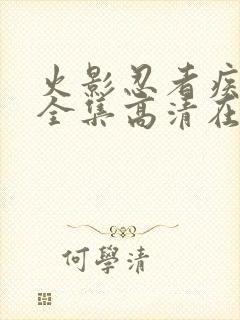 火影忍者疾
全集高清在
何學清